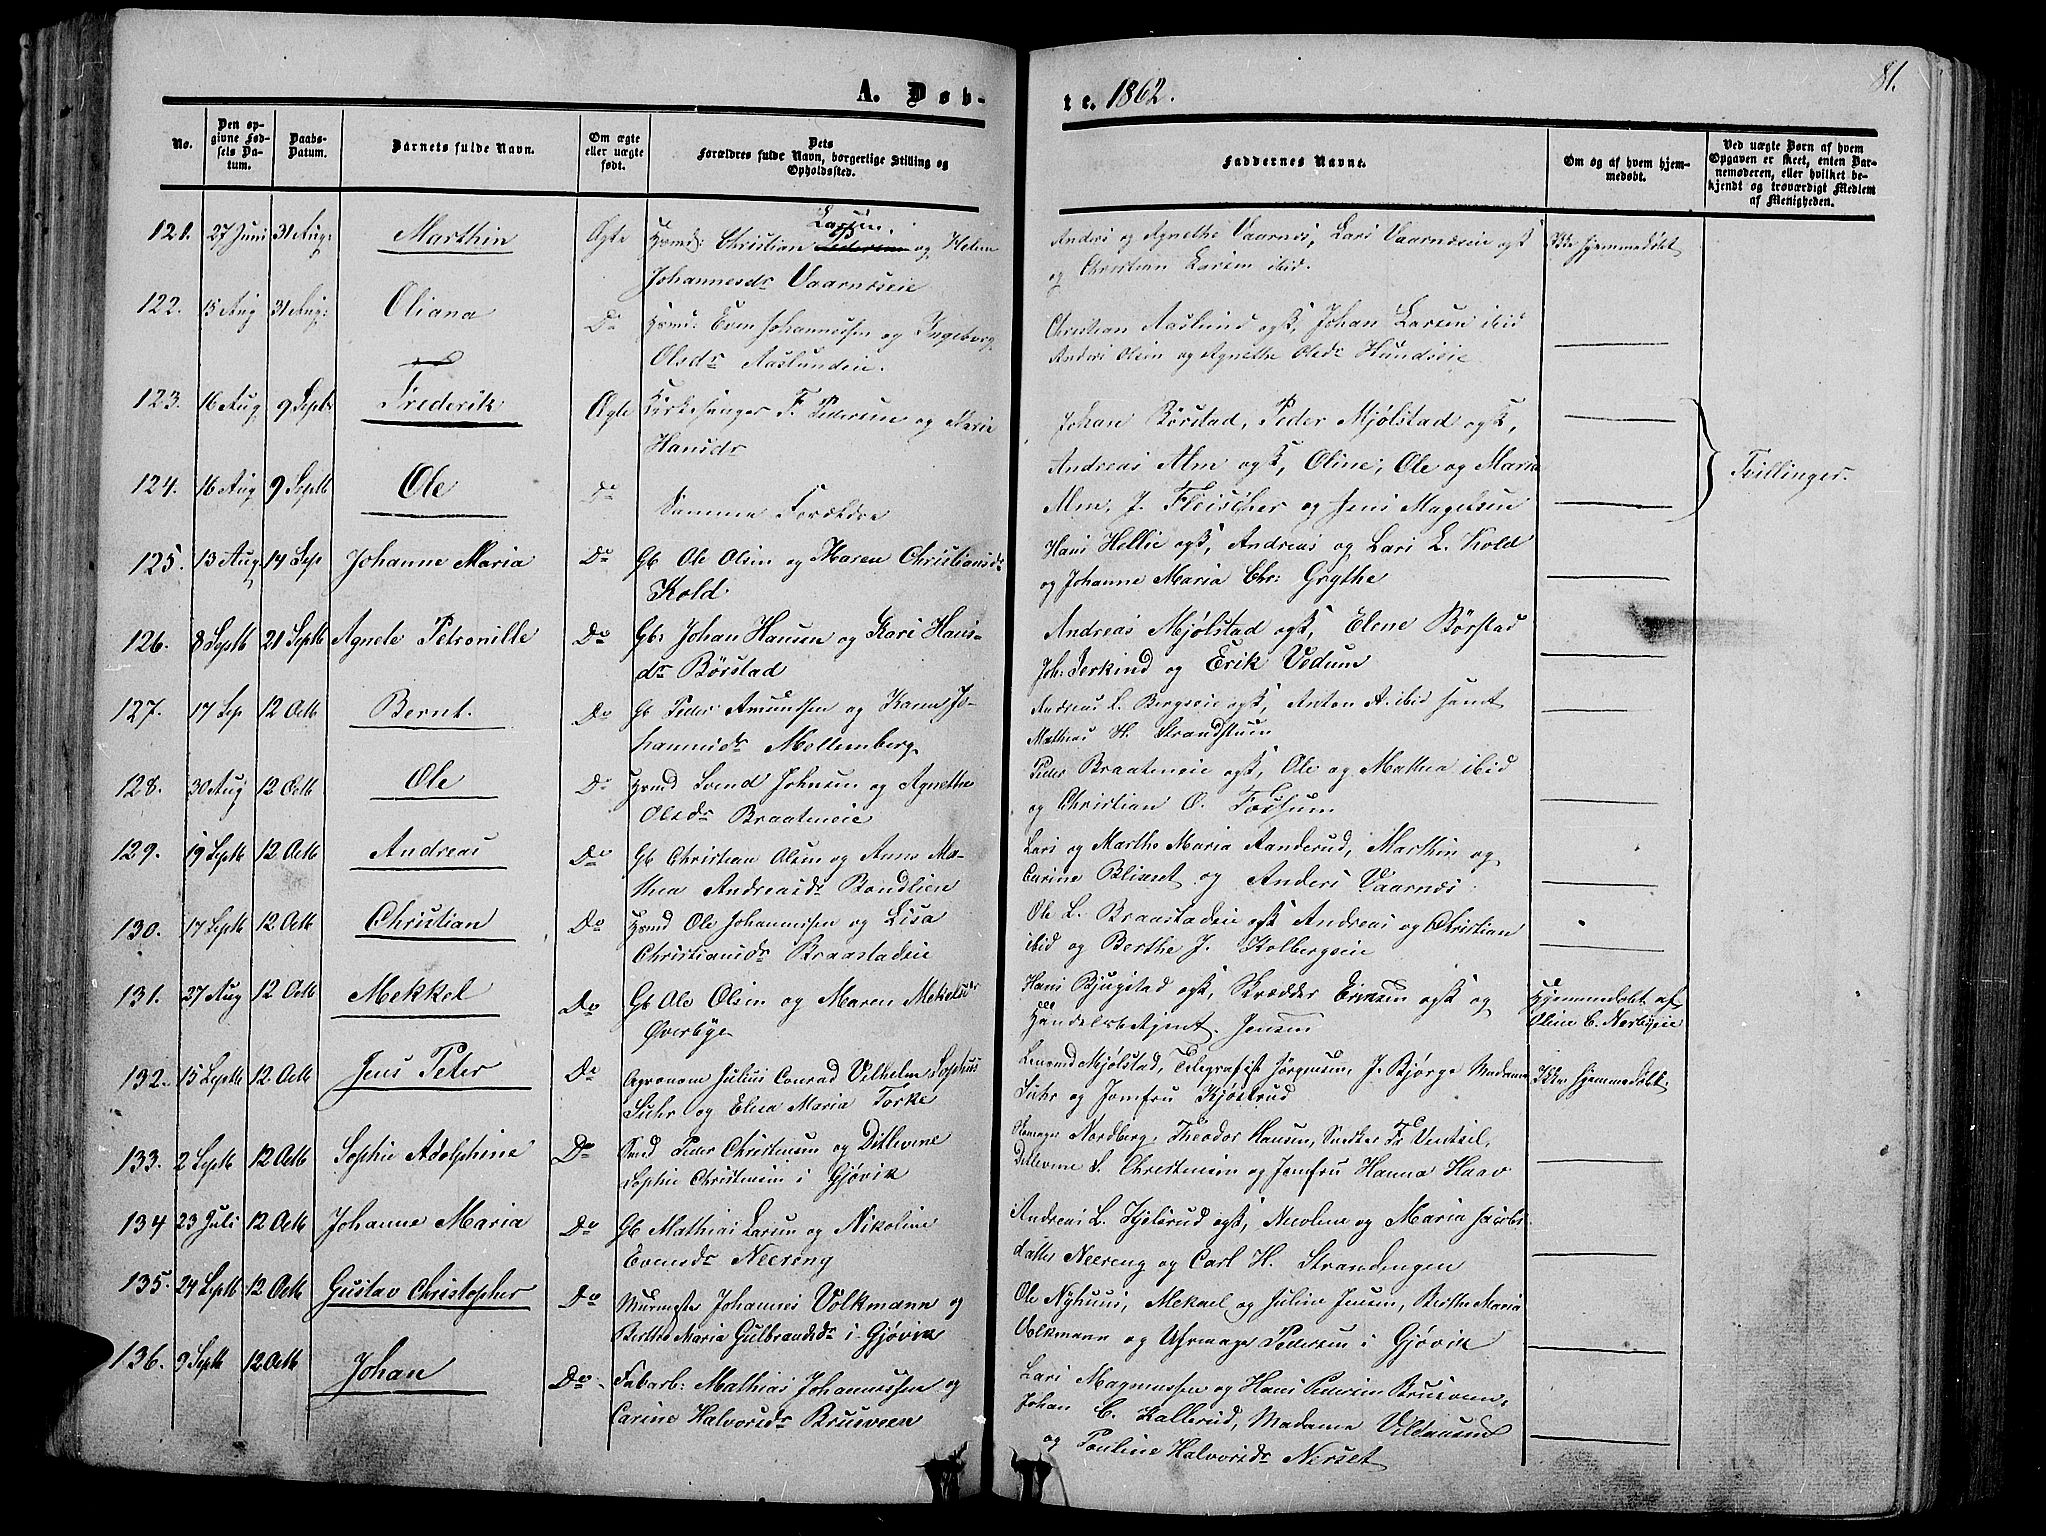 81.
A. Døb-
te. 1862.
No.
Den op-
givne Fød-
sels Da-
tum.
Daabs-
Datum.
Barnets fulde Navn.
Om ægte
eller uægte
født.
Dets
Forældres fulde Navn, borgerlige Stilling og
Opholdssted.
Faddernes Navne.
Om og af hvem hjem-
medøbt.
Ved uægte Børn af hvem
Opgaven er skeet, enten Bar-
nemoderen, eller hvilket be-
kjendt og troværdigt Medlem
af Menigheden.
Larsen.
121. 27 Juni 31 Aug: Marthin Ægte Huusmd: Christian Pedersen og Helene
Johannesdr Vaarnæseie
Anders og Agnethe Vaarnæs, Lars Vaarnæseie ogsk
og Christian Larsen ibid.
Ikke hjemmedøbt
122. 15 Aug 31 Aug: Oliana Do Huusmd: Even Johannessen og Ingeborg
Olsdr Aaslundeie.
Christian Aaslund ogsk, Johan Larsen ibid
Anders Olsen og Agnethe Olsdr Hundseie
123. 16 Aug 9 Septb Frederik Ægte Kirkesanger F. Pedersen og Marie
Hansdr
Johan Børstad, Peder Mjølstad ogsk,
Andreas Alm ogsk, Oline, Ole og Maria
Tvillinger.
124. 16 Aug 9 Septb Ole Do Samme Forældre
Alm, J. Fleischer og Jens Magelsen
125. 13 Aug 14 Sep Johanne Maria Do Gb Ole Olsen og Maren Christiansdr
Kold.
Hans Hellie ogsk, Andreas og Lars L. Kold
og Johanne Maria Chr: Grythe
126. 8 Septb 21 Septb Agnete Petronille Do Gb: Johan Hansen og Kari Hans-
dr Børstad
Andreas Mjølstad ogsk, Elene Børstad
Joh: Jerkind og Erik Vedum
127. 17 Sep 12 Octb Bernt. Do Gb Peder Amundsen og Karen Jo-
hannesdr Mollumberg
Andreas L. Bergseie ogsk, Anton A. ibid samt
Mathias H. Strandstuen
128. 30 Aug 12 Octb Ole Do Huusmd Svend Johnsen og Agnethe
Olsdr Braateneie
Peder Braateneie ogsk, Ole og Mathea ibid
og Christian O. Fossum
129. 19 Septb 12 Octb Andreas Do Gb Christian Olsen og Anne Ma-
thea Andreasdr Bondlien
Lars og Marthe Maria Aanderud, Marthin og
Carine Blixret og Anders Vaarnæs
130. 17 Septb 12 Octb Christian Do Huusmd Ole Johannessen og Lisa
Christiansdr Braastadeie
Ole L. Braastadeie ogsk Andreas og Christian
ibid og Berthe J. Kolbergseie
131. 27 Aug 12 Octb Mekkel Do Gb Ole Olsen og Maren Mekelsdr
Øverbye
Hans Bjugstad ogsk, Skrædder Evensen ogsk og
Handelsbetjent Jensen
Hjemmedøbt af
Oline C. Nerbyeie
132. 15 Septb 12 Octb Jens Peter Do Agronom Julius Conrad Vilhelm Sophus
Suhr og Elisa Maria Torke
Lensmd Mjølstad, Telegrafist Jørgensen, J. Bjørge Madame
Suhr og Jomfru Kjøstrud
Ikke hjemmedøbt
133. 2 Septb 12 Octb Sophie Adolphine Do Smed Peder Christensen og Ditlevine
Sophie Christensen i Gjøvik
Nordberg, Theodor Hansen, Snedker Fr Ventsel,
Ditlevine S. Christensen og Jomfru Hanna Haav
134 23 Juli 12 Octb Johanne Maria Do Gb Mathias Larsen og Nikoline
Evensdr Neereng
Andreas L. Hjelsrud ogsk, Nicoline og Maria Jacobs
datter Neereng og Carl H. Strandengen
135. 24 Septb 12 Octb Gustav Christopher Do Murmester Johannes Volkmann og
Berthe Maria Gulbrandsdr i Gjøvik
Ole Nyhuus, Mekael og Juline Jensen, Berthe Maria
Volkmann og Uhrmager Pedersen i Gjøvik
136. 9 Septb 12 Octb Johan Do Fabarb: Mathias Johannessen og
Carine Halvorsdr Brusveen
Lars Magnussen og Hans Pedersen Bruseveen,
Johan C. Kallerud, Madame Vildausen
og Pauline Halvorsdr Nerset